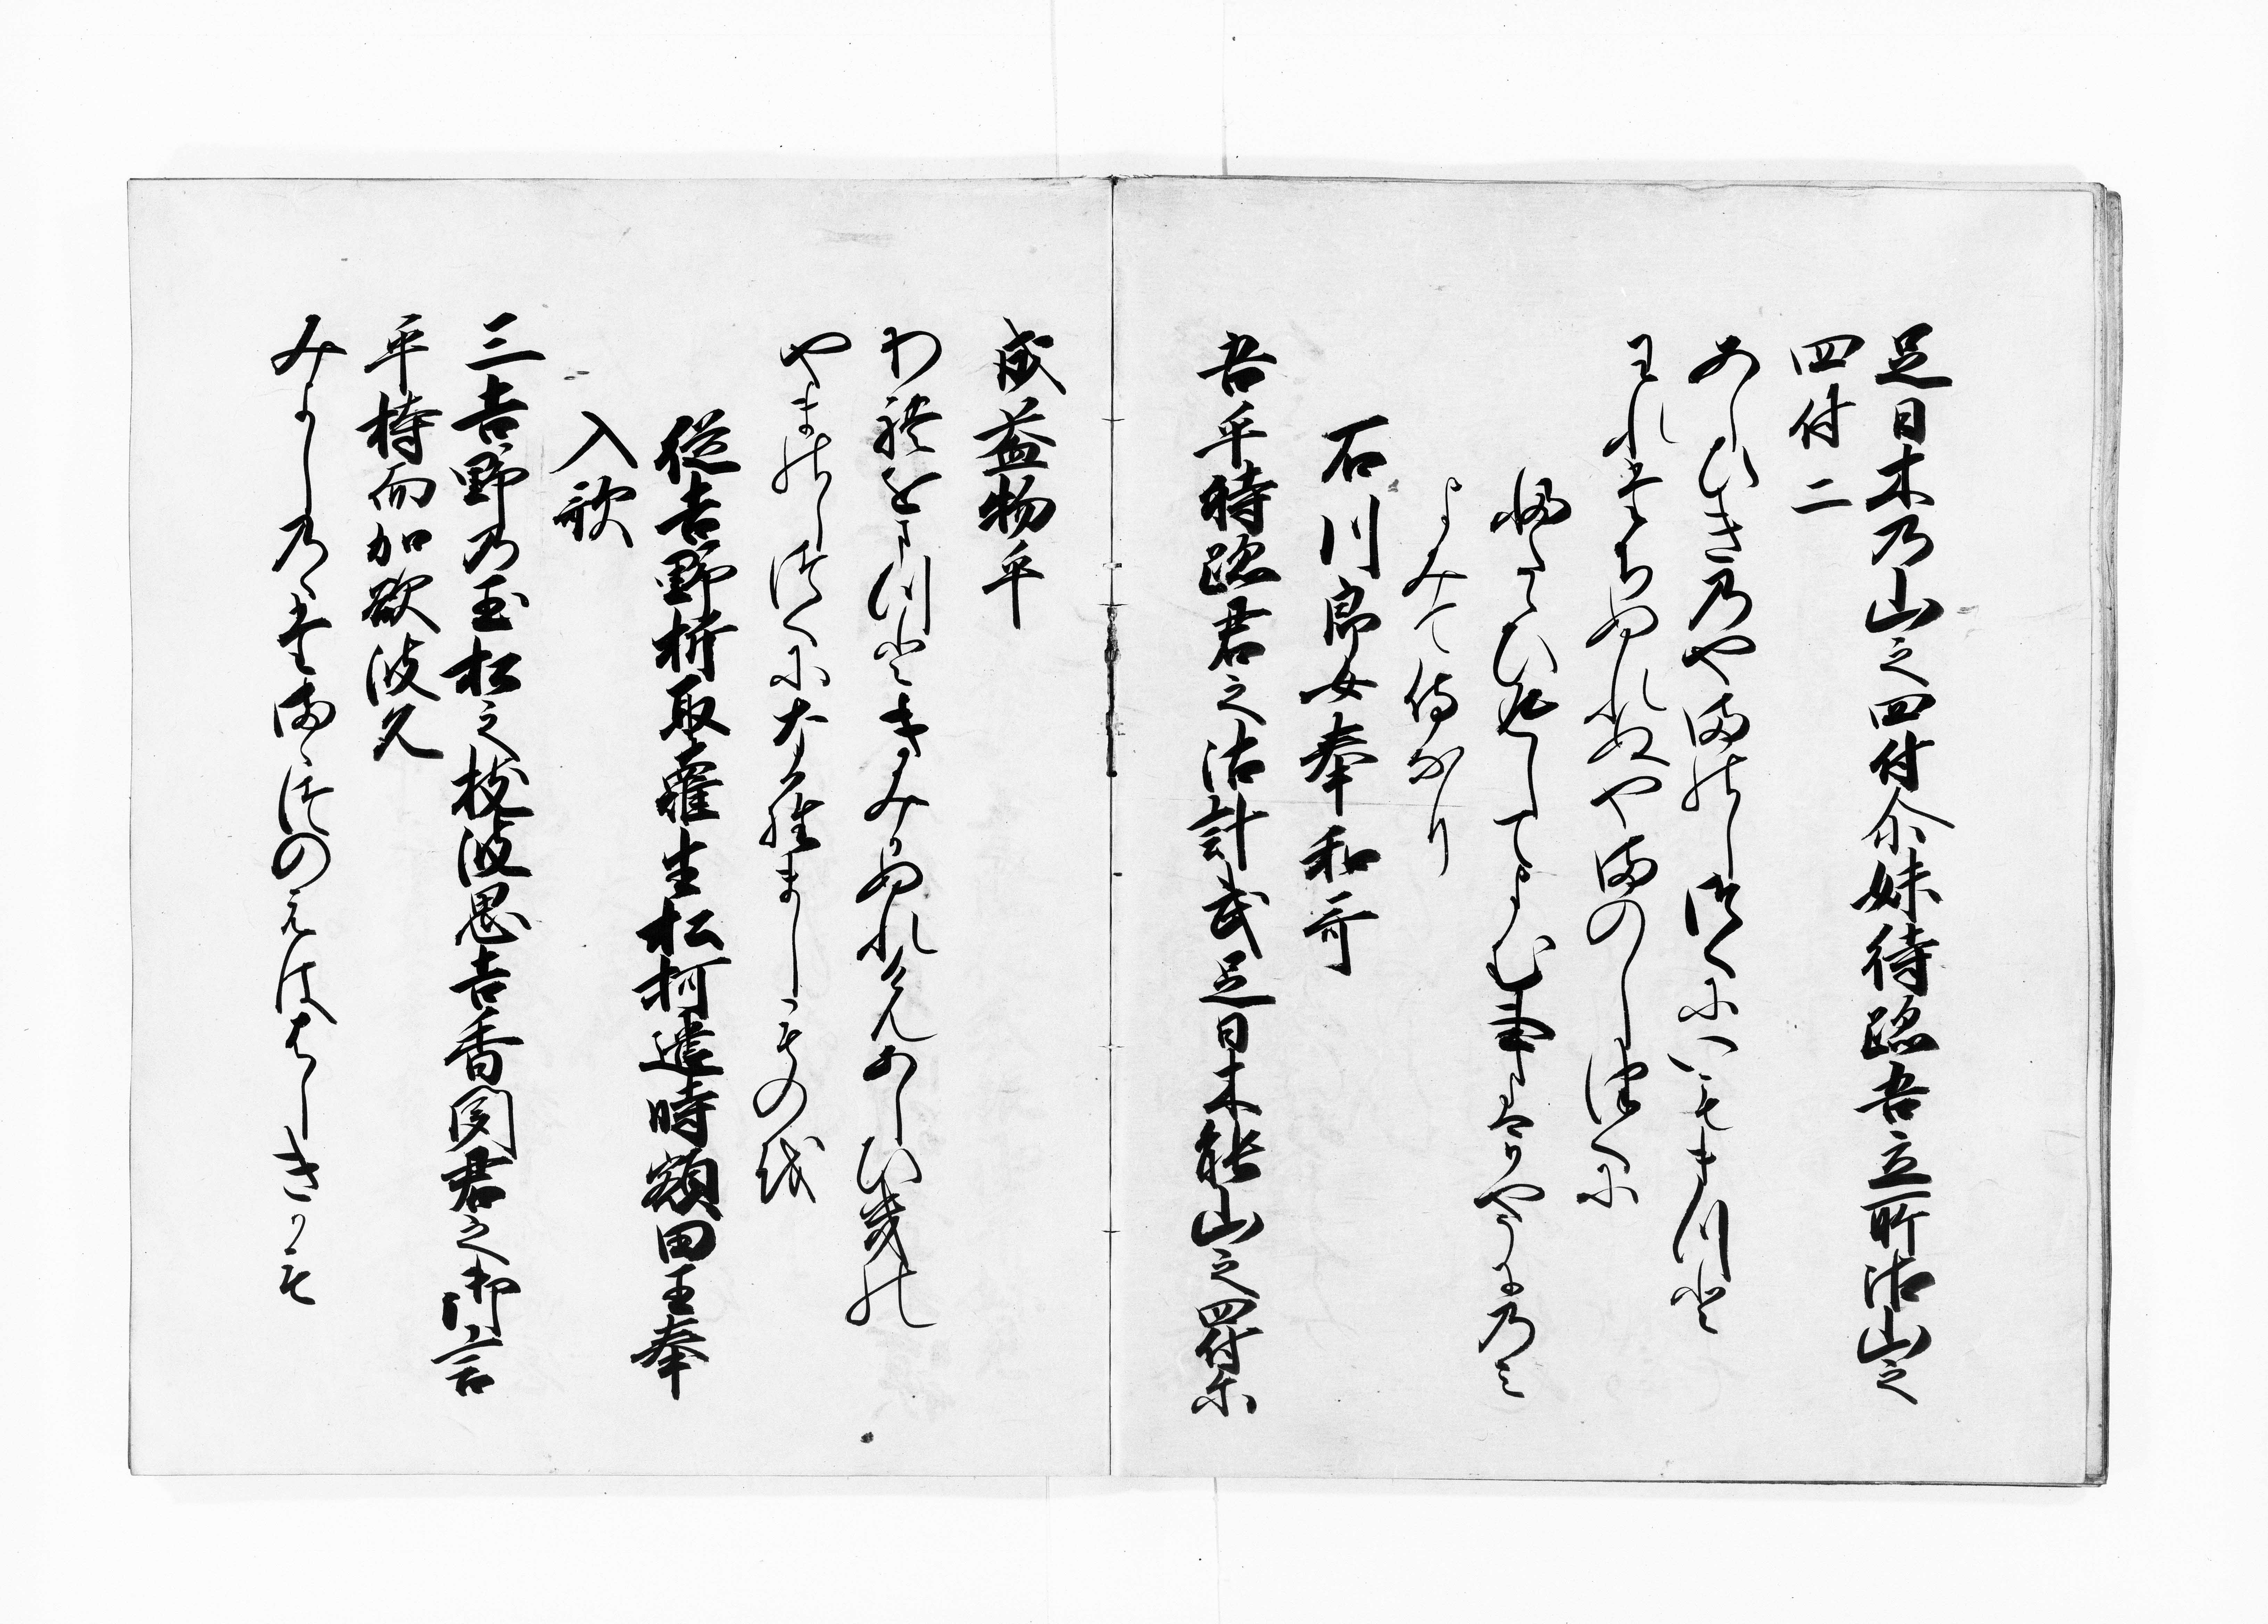 足日木乃山之四付尒妹待跡吾立所沾山之
四付二
あしひき乃やまのしつくにいもまつと
われたちぬれぬやまのしつくに
よみて侍なり
石川郎女奉和哥
吾乎待跡君之沾計武足日木能山之四付尓
成益物乎
わ禮をまつときみかぬれけんあしひ幾の
やまのしつくになら

ましものを
從吉野折取蘿生松柯遣時額田王奉
入歌
三吉野乃玉松之枝波思吉香聞君之御言
乎持而加欲波久
みよしのゝたまゝつのえははしきかも